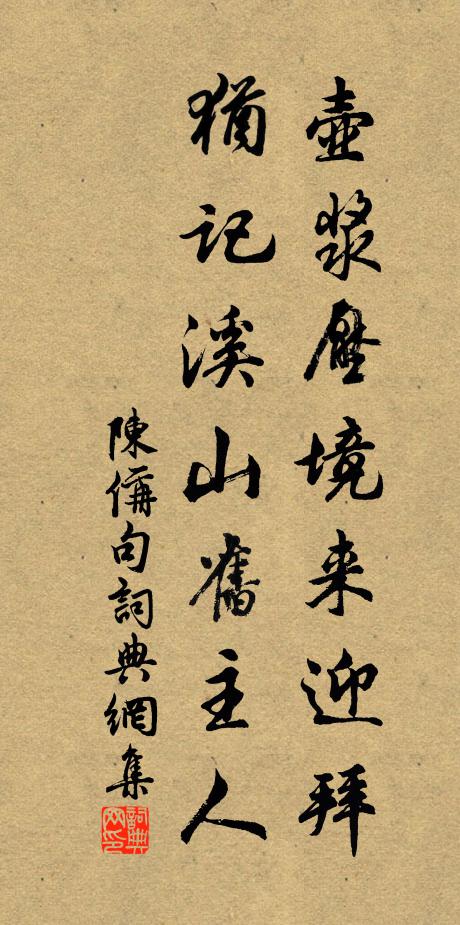 壺漿壓境来迎拜
猶記溪山舊主人
陳偁句詞典網集
詞典網印